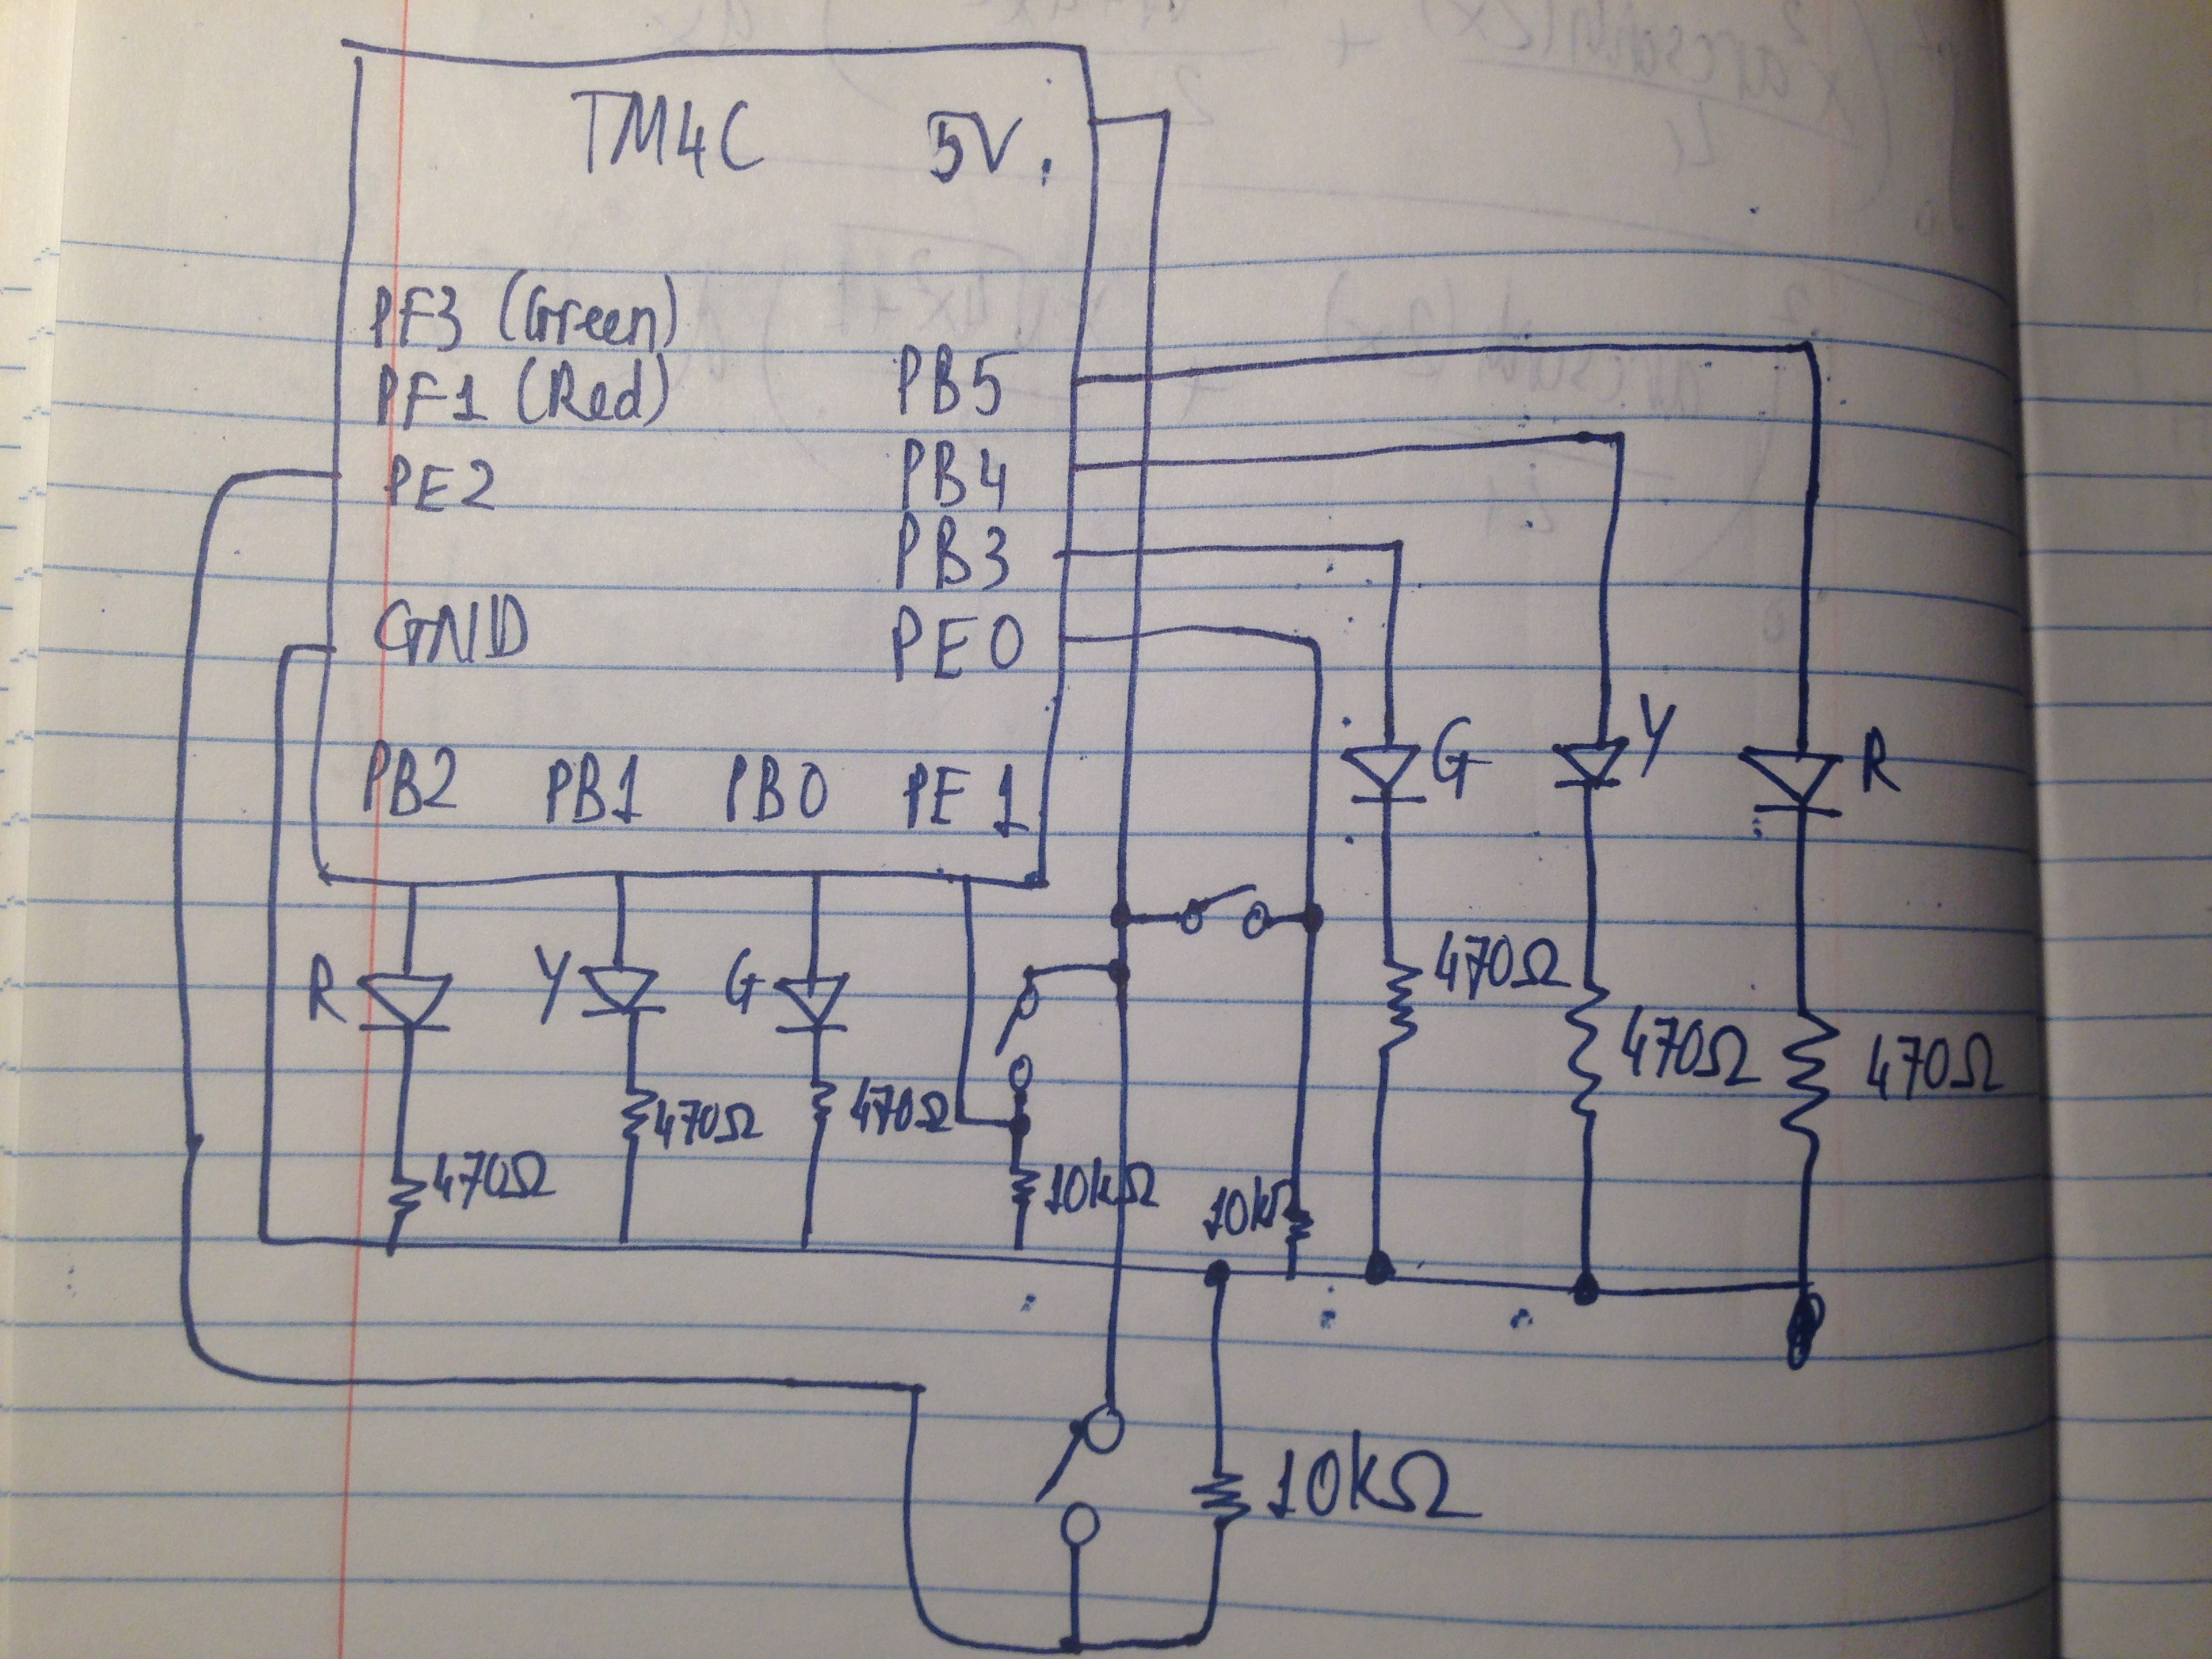 TM4C 5V.
PF3 (Green)
PF1 (Red) PB5
PE2 PB4
PB3
GND PE0
PB2 PB1 PB0 PE1
G Y R
R Y G 470Ω
470Ω 470Ω
470Ω 470Ω
470Ω 10kΩ 10kΩ
10kΩ